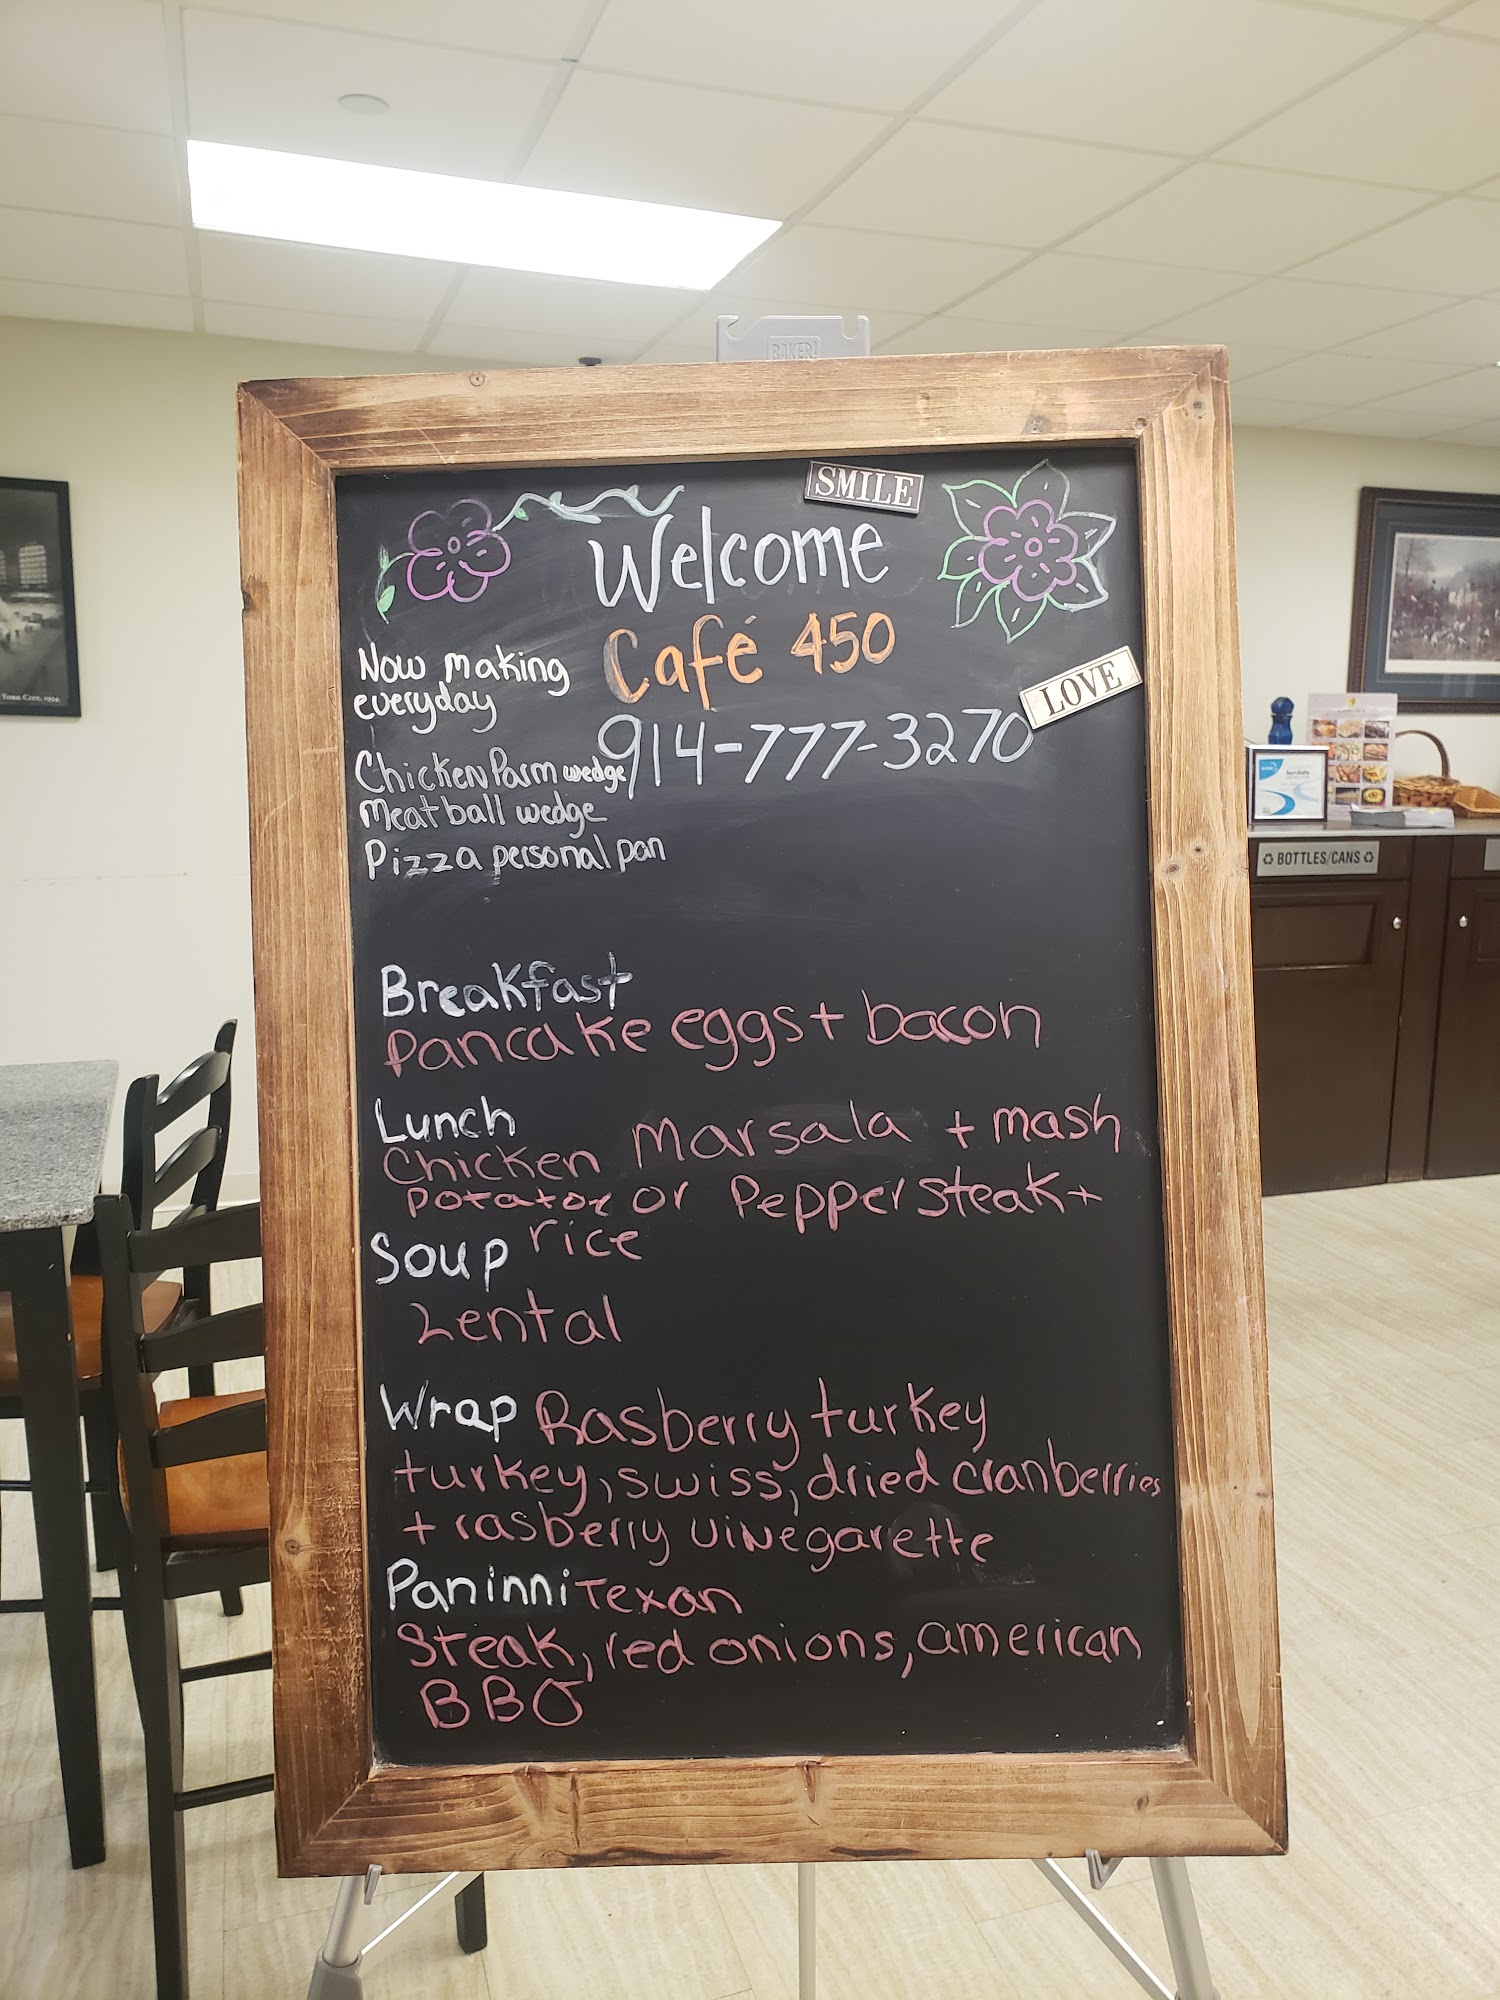 BAKER!
SMILE
Welcome
Café 450
LOVE
914-777-3270
Now making
everyday
Chicken Parm wedge
Meatball wedge
Pizza personal pan
Breakfast
Pancake eggs + bacon
Lunch
Chicken Marsala + mash
potatoe or Pepper steak +
rice
Soup
Lental
Wrap Rasberry turkey
turkey, swiss, dried cranberries
+ rasberry vinegarette
Paninni Texan
Steak, red onions, american
BBQ
York City, 1934
BOTTLES/CANS